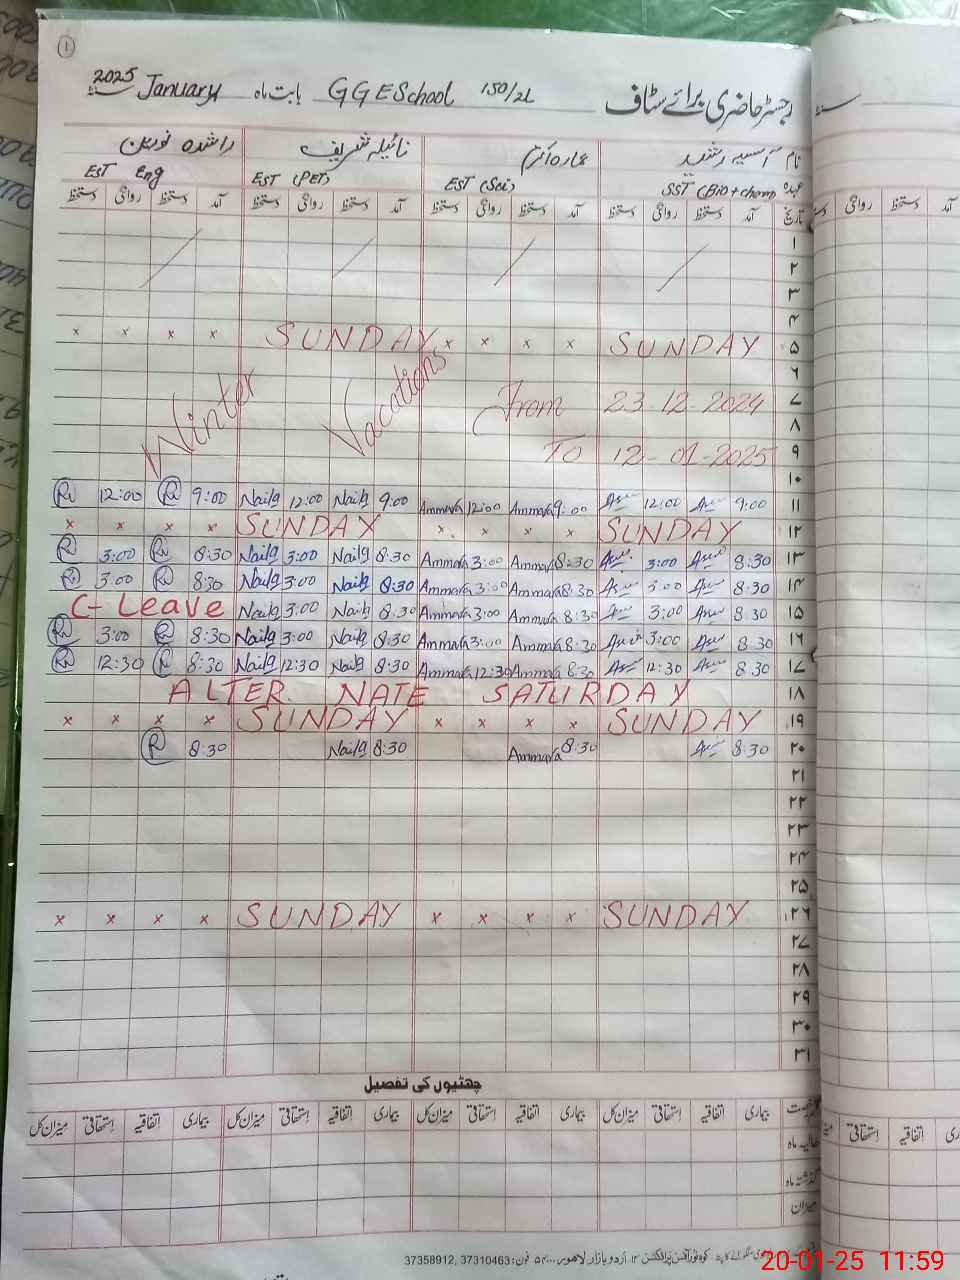 ①
رجسٹر حاضری برائے سٹاف GGESchool 150/2L بابت ماہ January 2025
نام آسیہ رشید عمارہ اکرم نائیلہ شریف راشدہ نورین
عہدہ SST (Bio+chem) EST (Sci) EST (PET) EST Eng
تاریخ آمد دستخط روانگی دستخط آمد دستخط روانگی دستخط آمد دستخط روانگی دستخط آمد دستخط روانگی دستخط
۱
۲
۳
۴
x x x x SUNDAY x x x x SUNDAY ۵
۶
Winter Vacations From 23-12-2024 ۷
۸
To 12-01-2025 ۹
۱۰
12:00 9:00 Naila 12:00 Naila 9:00 Ammara 12:00 Ammara 9:00 12:00 9:00 ۱۱
x x x x SUNDAY x x x x SUNDAY ۱۲
3:00 8:30 Naila 3:00 Naila 8:30 Ammara 3:00 Ammara 8:30 3:00 8:30 ۱۳
3:00 8:30 Naila 3:00 Naila 8:30 Ammara 3:00 Ammara 8:30 3:00 8:30 ۱۴
C-Leave Naila 3:00 Naila 8:30 Ammara 3:00 Ammara 8:30 3:00 8:30 ۱۵
3:00 8:30 Naila 3:00 Naila 8:30 Ammara 3:00 Ammara 8:30 3:00 8:30 ۱۶
12:30 8:30 Naila 12:30 Naila 8:30 Ammara 12:30 Ammara 8:30 12:30 8:30 ۱۷
ALTER NATE SATURDAY ۱۸
x x x x SUNDAY x x x x SUNDAY ۱۹
8:30 Naila 8:30 Ammara 8:30 8:30 ۲۰
۲۱
۲۲
۲۳
۲۴
۲۵
x x x x SUNDAY x x x x SUNDAY ۲۶
۲۷
۲۸
۲۹
۳۰
۳۱
چھٹیوں کی تفصیل
بیماری اتفاقیہ استحقاقی میزان کل بیماری اتفاقیہ استحقاقی میزان کل بیماری اتفاقیہ استحقاقی میزان کل بیماری اتفاقیہ استحقاقی میزان کل
حالیہ ماہ
گذشتہ ماہ
میزان
اردو بازار لاہور فون: 37358912, 37310463
20-01-25 11:59